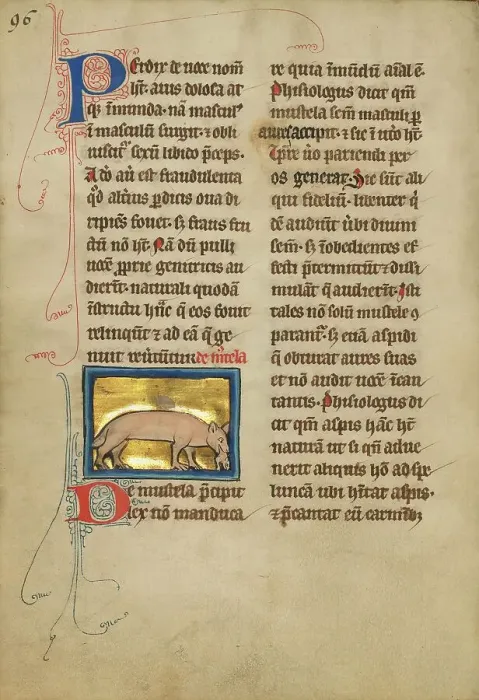 96
Perdix de uoce nom̄
ħt. auis dolosa at
q; īmunda. nā mascul'
ī masculū surgit. ⁊ obli
uiscit' sexū libido p̄ceps.
Adō aū est fraudulenta
qđ alt'ius ꝑdicis oua di
ripiēs fouet. s; fraus fru
ctū nō ħt. Nā dū pulli
uocē ꝓprie genitricis au
dierīt. naturali quodā
īstinctu hūc q̄ eos fouit
relinqūt ⁊ ad eā q̄ ge
nuit reu'tūtur. de m'tela
De mustela p̄cipit
lex nō manduca
re quia īmūdū aīal ē.
Phisiologus dicit qm̄
mustela sem̄ masculi ꝑ
aurē accipit. ⁊ sic ī ut'o ħt
Tp̄re ūo pariendi per
os generat. Sic sūt ali
qui fideliū. libenter q̄
dē audiūt ūbi diuini
sem̄. s; īobedientes ef
fecti p̄termittūt ⁊ dissi
mulāt q̄ audierīt. Isti
tales nō solū mustele ꝯ
parant'. s; etiā aspidi
q̄ obturat aures suas
et nō audit uocē īcan
tantis. Phisiologus di
cit qm̄ aspis hāc ħt
naturā ut si qn̄ adue
nerit aliquis hō ad spe
luncā ubi hītat aspis.
⁊ p̄cantat eū carmīb;